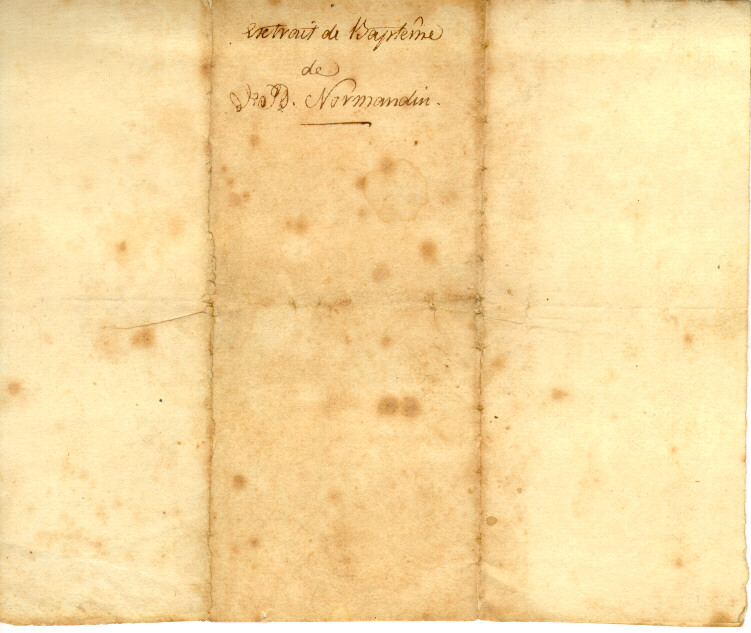 Extrait de Baptême
de
Jn B. Normandin.